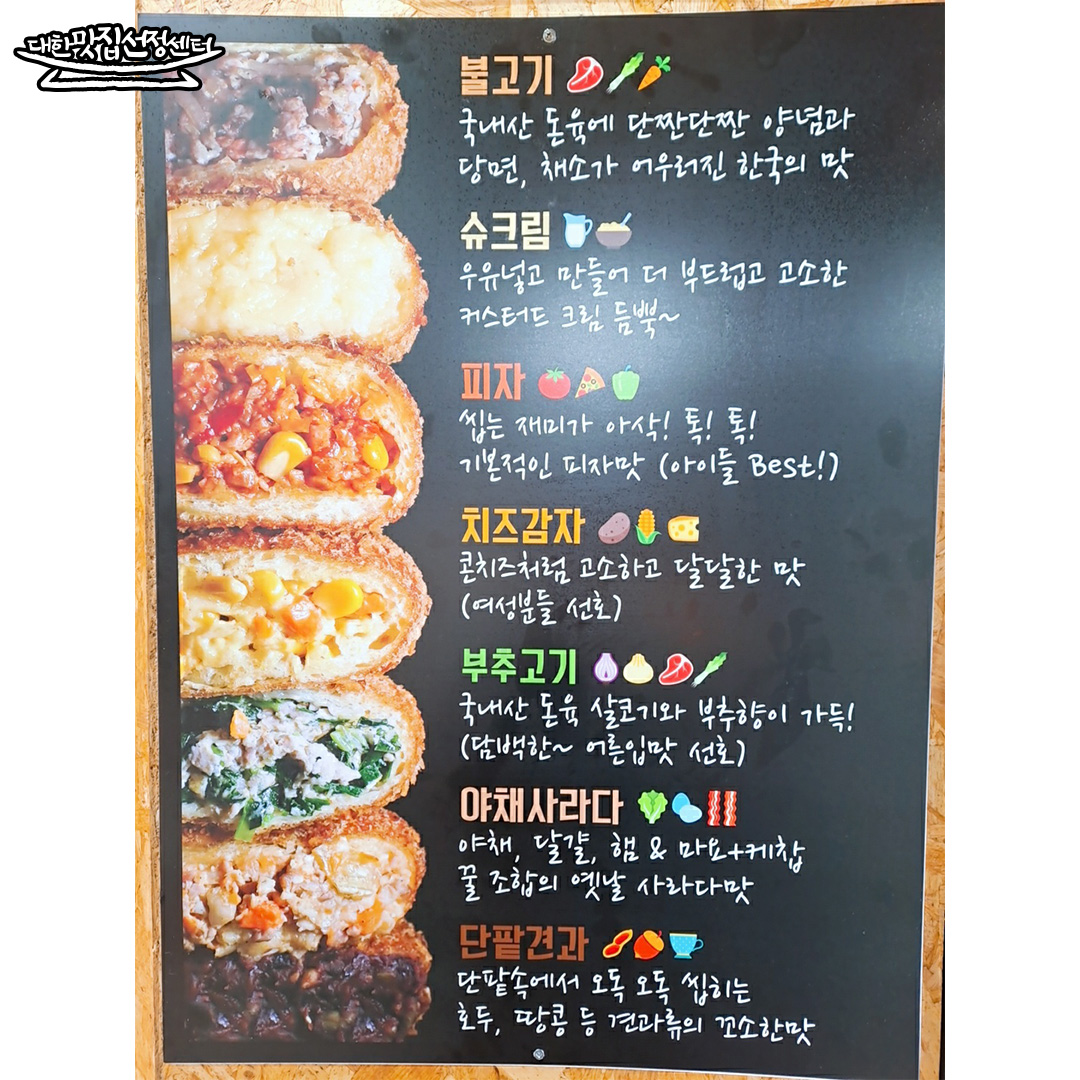 대한맛집선정센터
불고기
국내산 돈육에 단짠단짠 양념과
당면, 채소가 어우러진 한국의 맛
슈크림
우유넣고 만들어 더 부드럽고 고소한
커스터드 크림 듬뿍~
피자
씹는 재미가 아삭! 톡! 톡!
기본적인 피자맛 (아이들 Best!)
치즈감자
콘치즈처럼 고소하고 달달한 맛
(여성분들 선호)
부추고기
국내산 돈육 살코기와 부추향이 가득!
(담백한~ 어른입맛 선호)
야채사라다
야채, 달걀, 햄 & 마요+케찹
꿀 조합의 옛날 사라다맛
단팥견과
단팥속에서 오독 오독 씹히는
호두, 땅콩 등 견과류의 꼬소한맛